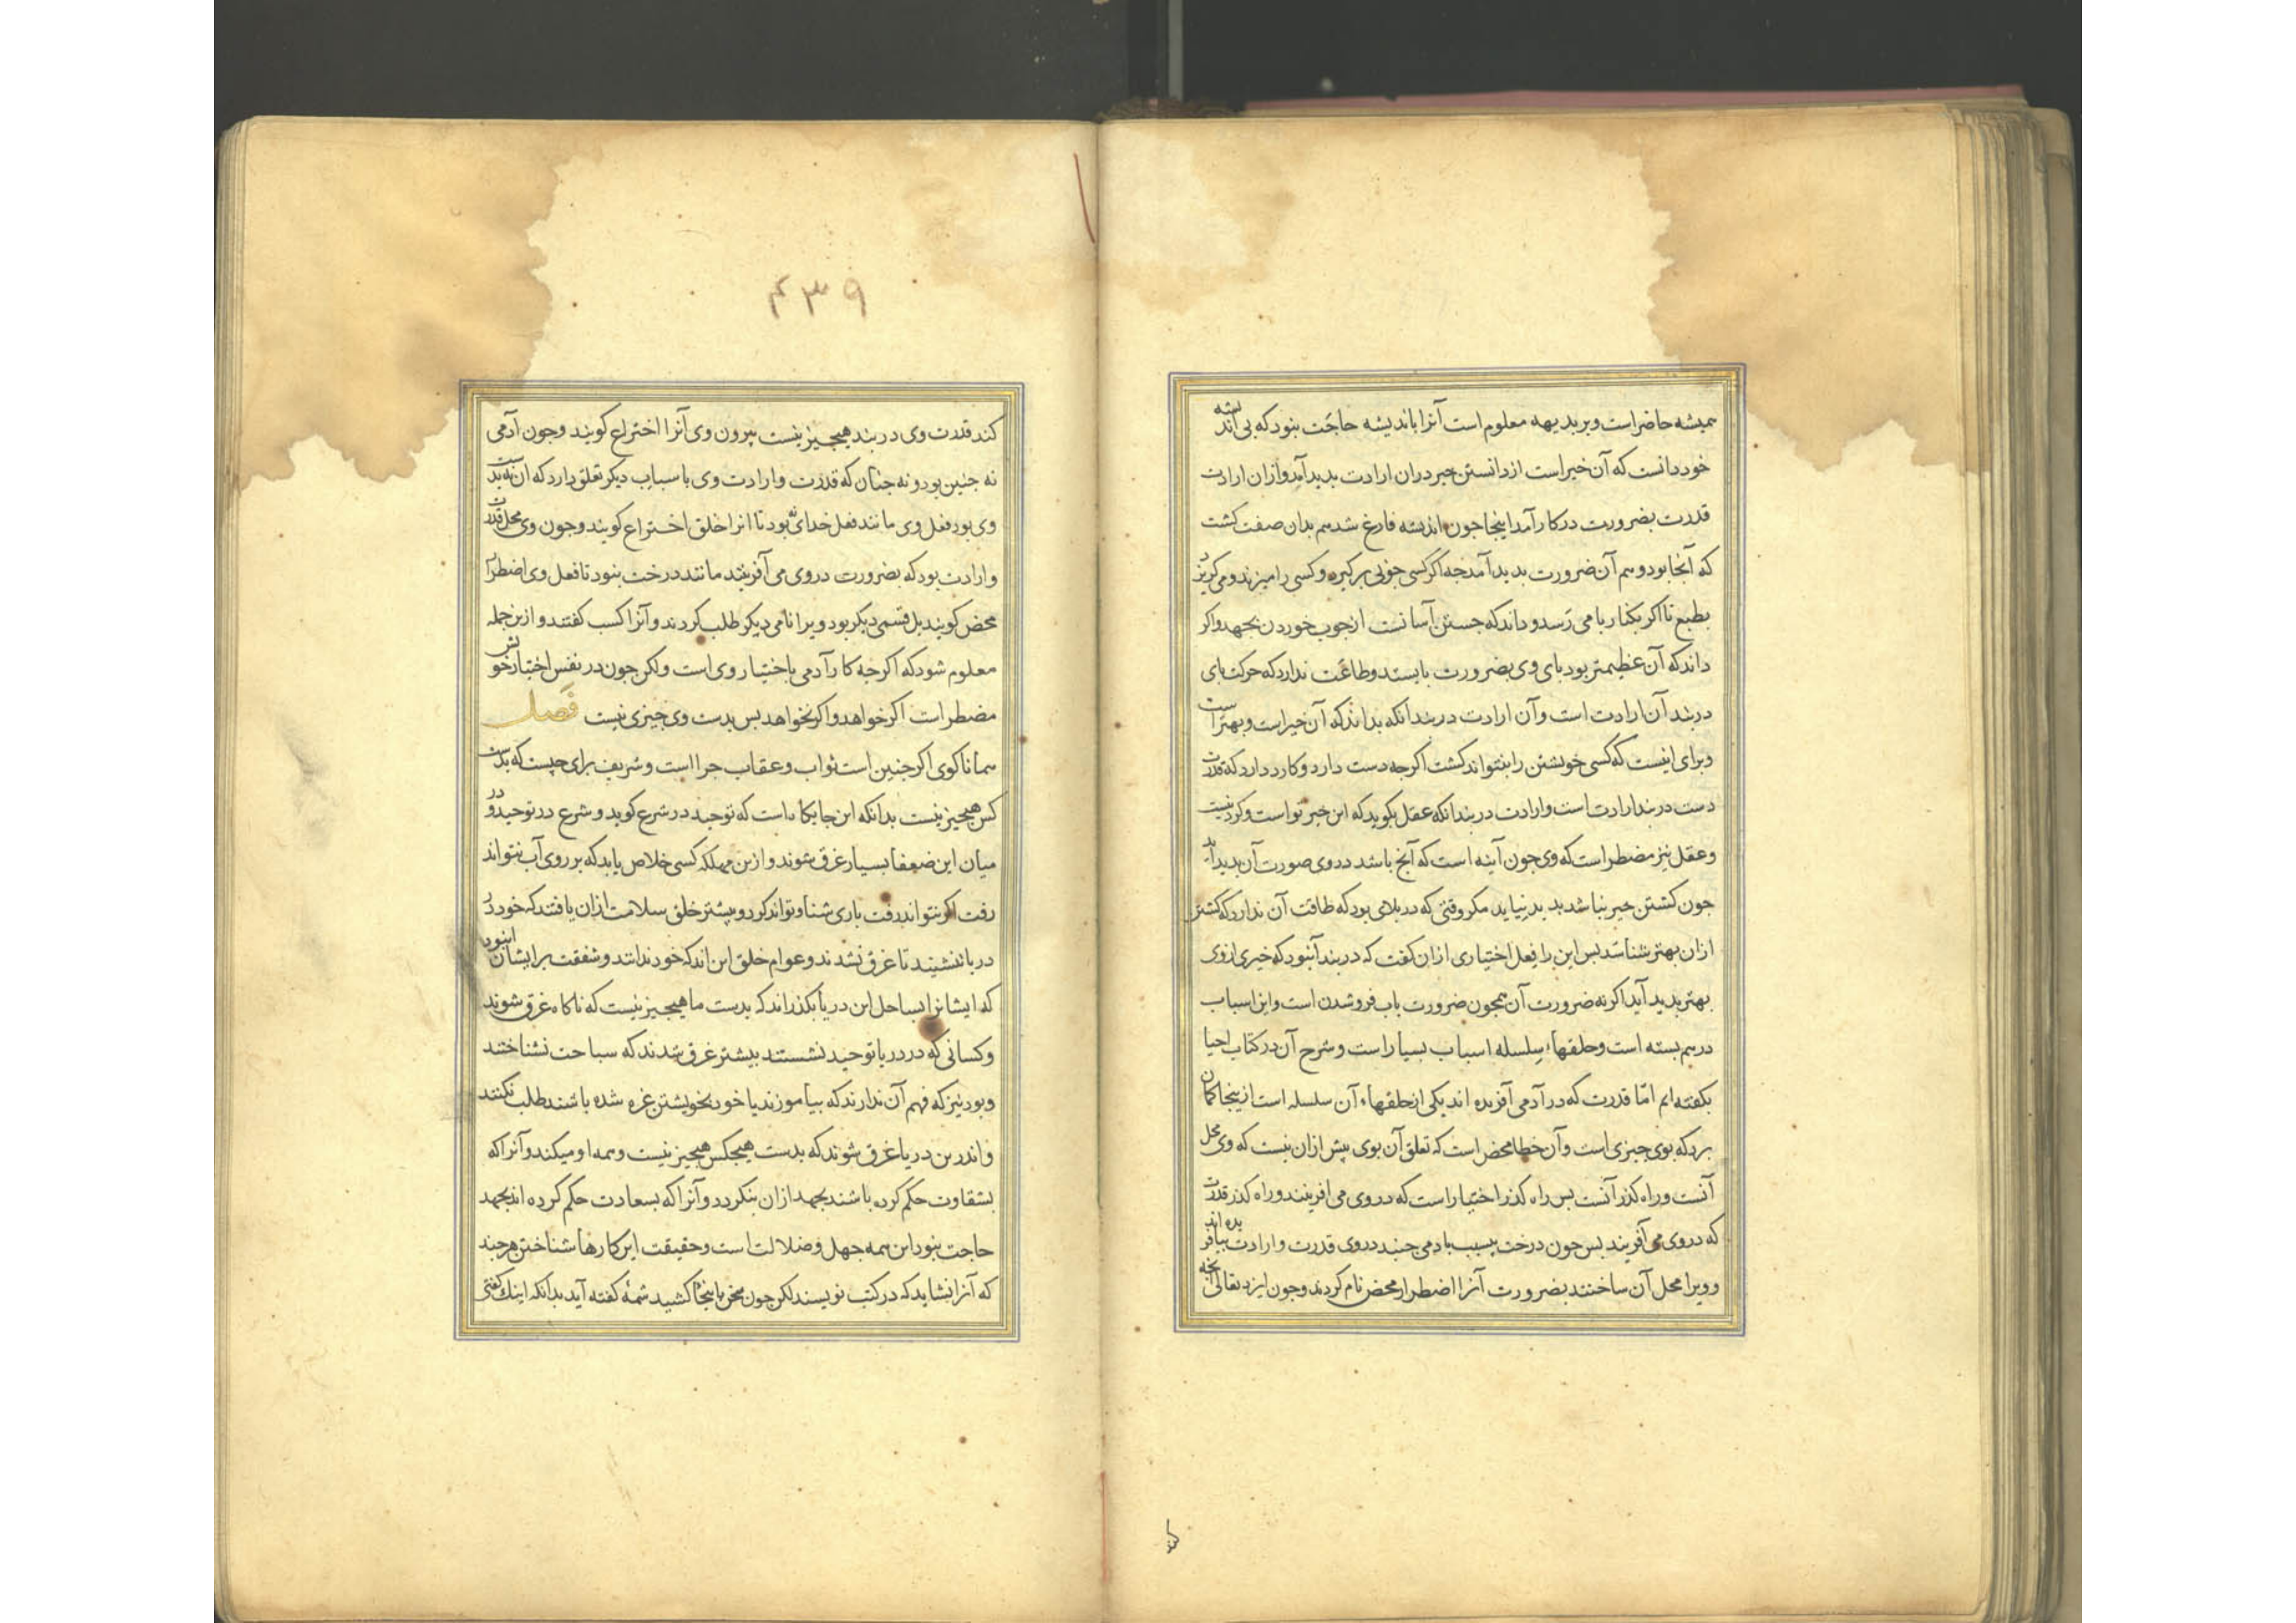 همیشه حاضر است و بر بدیهه معلوم است آنرا باندیشه حاجت نبود که بی اندیشه
خود دانست که آن خیر است از دانستن خیر دران ارادت بدید آمد و ازان ارادت
قدرت بضرورت در کار آمد اینجا جون اندیشه فارغ شد هم بدان صفت کشت
که آنجا بود و هم آن ضرورت بدید آمد جه اکر کسی جوبی برکیرد و کسی را میزند و می کریزد
بطبع تا اکر بکنار بامی رسد و داند که جستن آسانست از جوب خوردن بجهد و اکر
داند که آن عظیمتر بود بای وی بضرورت بایستد و طاعت ندارد که حرکت بای
در بند آن ارادت است و آن ارادت در بند انکه بداند که آن خیر است و بهتر است
و برای اینست که کسی خویشتن را بنتواند کشت اکرجه دست دارد و کارد دارد که قدرت
دست در بند ارادت است و ارادت در بند انکه عقل بکوید که این خیر تو است و کردنیست
و عقل نیز مضطر است که وی جون آینه است که آنج باشد در وی صورت آن بدید آید
جون کشتن خیر نباشد بدید نیاید مکر وقتی که در بلای بود که طاقت آن ندارد که کشتن
ازان بهتر شناسد بس این را فعل اختیاری ازان کفت که در بند آنبود که خیری از وی
بهتر بدید آید اکرنه ضرورت آن همجون ضرورت باب فروشدن است و این اسباب
در هم بسته است و حلقهاء سلسله اسباب بسیار است و شرح آن در کتاب احیا
بکفته ایم امّا قدرت که در آدمی آفریده اند یکی از حلقهاء آن سلسله است ازینجا کمان
برد که بوی جیزی است و آن خطا محض است که تعلق آن بوی بیش ازان نیست که وی محل
آنست و راه کذر آنست بس راه کذر اختیار است که در وی می افرینند و راه کذر قدرت
که در وی می آفریند بس جون درخت بسبب باد می جنبد در وی قدرت و ارادت بیافریده اند
و ویرا محل آن ساختند بضرورت آنرا اضطرار محض نام کردند و جون ایزد تعالی انجه
۴۳۹
کند قدرت وی در بند هیججیز نیست بیرون وی آنرا اختراع کویند و جون آدمی
نه جنین بود و نه جنان که قدرت و ارادت وی باسباب دیکر تعلق دارد که ان نه بدست
وی بود فعل وی مانند فعل خدای نبود تا انرا خلق اختراع کویند و جون وی محل قدرت
و ارادت بود که بضرورت در وی می آفرینند مانند درخت نبود تا فعل وی اضطرار
محض کویند بل قسمی دیکر بود ویرا نامی دیکر طلب کردند و آنرا کسب کفتند و ازین جمله
معلوم شود که اکرجه کار آدمی باختیار وی است ولکن جون در نفس اختیار خویش
مضطر است اکر خواهد و اکر نخواهد بس بدست وی جیزی نیست فصل
همانا کوی اکر جنین است ثواب و عقاب جرا است و شریعت برای چیست که بدست
کس هیججیز نیست بدانکه این جایکاه است که توحید در شرع کوید و شرع در توحید و در
میان این ضعفا بسیار غرق شوند و ازین مهلکه کسی خلاص یابد که بر روی آب بتواند
رفت اکر نتواند رفت باری شنا و تواند کرد و بیشتر خلق سلامت ازان یافتند که خود در
دریا ننشینند تا غرق نشدند و عوام خلق این اند که خود ندانند و شفقت بر ایشان انبود
که ایشانرا بساحل این دریا بکذراند که بدست ما هیججیز نیست که ناکاه غرق شوند
و کسانی که در دریا توحید نشستند بیشتر غرق شدند که سباحت نشناختند
و بود نیز که فهم آن ندارند که بیاموزند یا خود بخویشتن غره شده باشند طلب نکنند
و اندرین دریا غرق شوند که بدست هیجکس هیجیز نیست و همه او میکند و آنرا که
بشقاوت حکم کرده باشند بجهد ازان بنکردد و آنرا که بسعادت حکم کرده اند بجهد
حاجت نبود این همه جهل و ضلالت است و حقیقت این کارها شناختن هرجند
که آنرا نشاید که در کتب نویسند لکن جون سخن باینجا کشید شمهٔ کفته آید بدانکه اینک کفتی